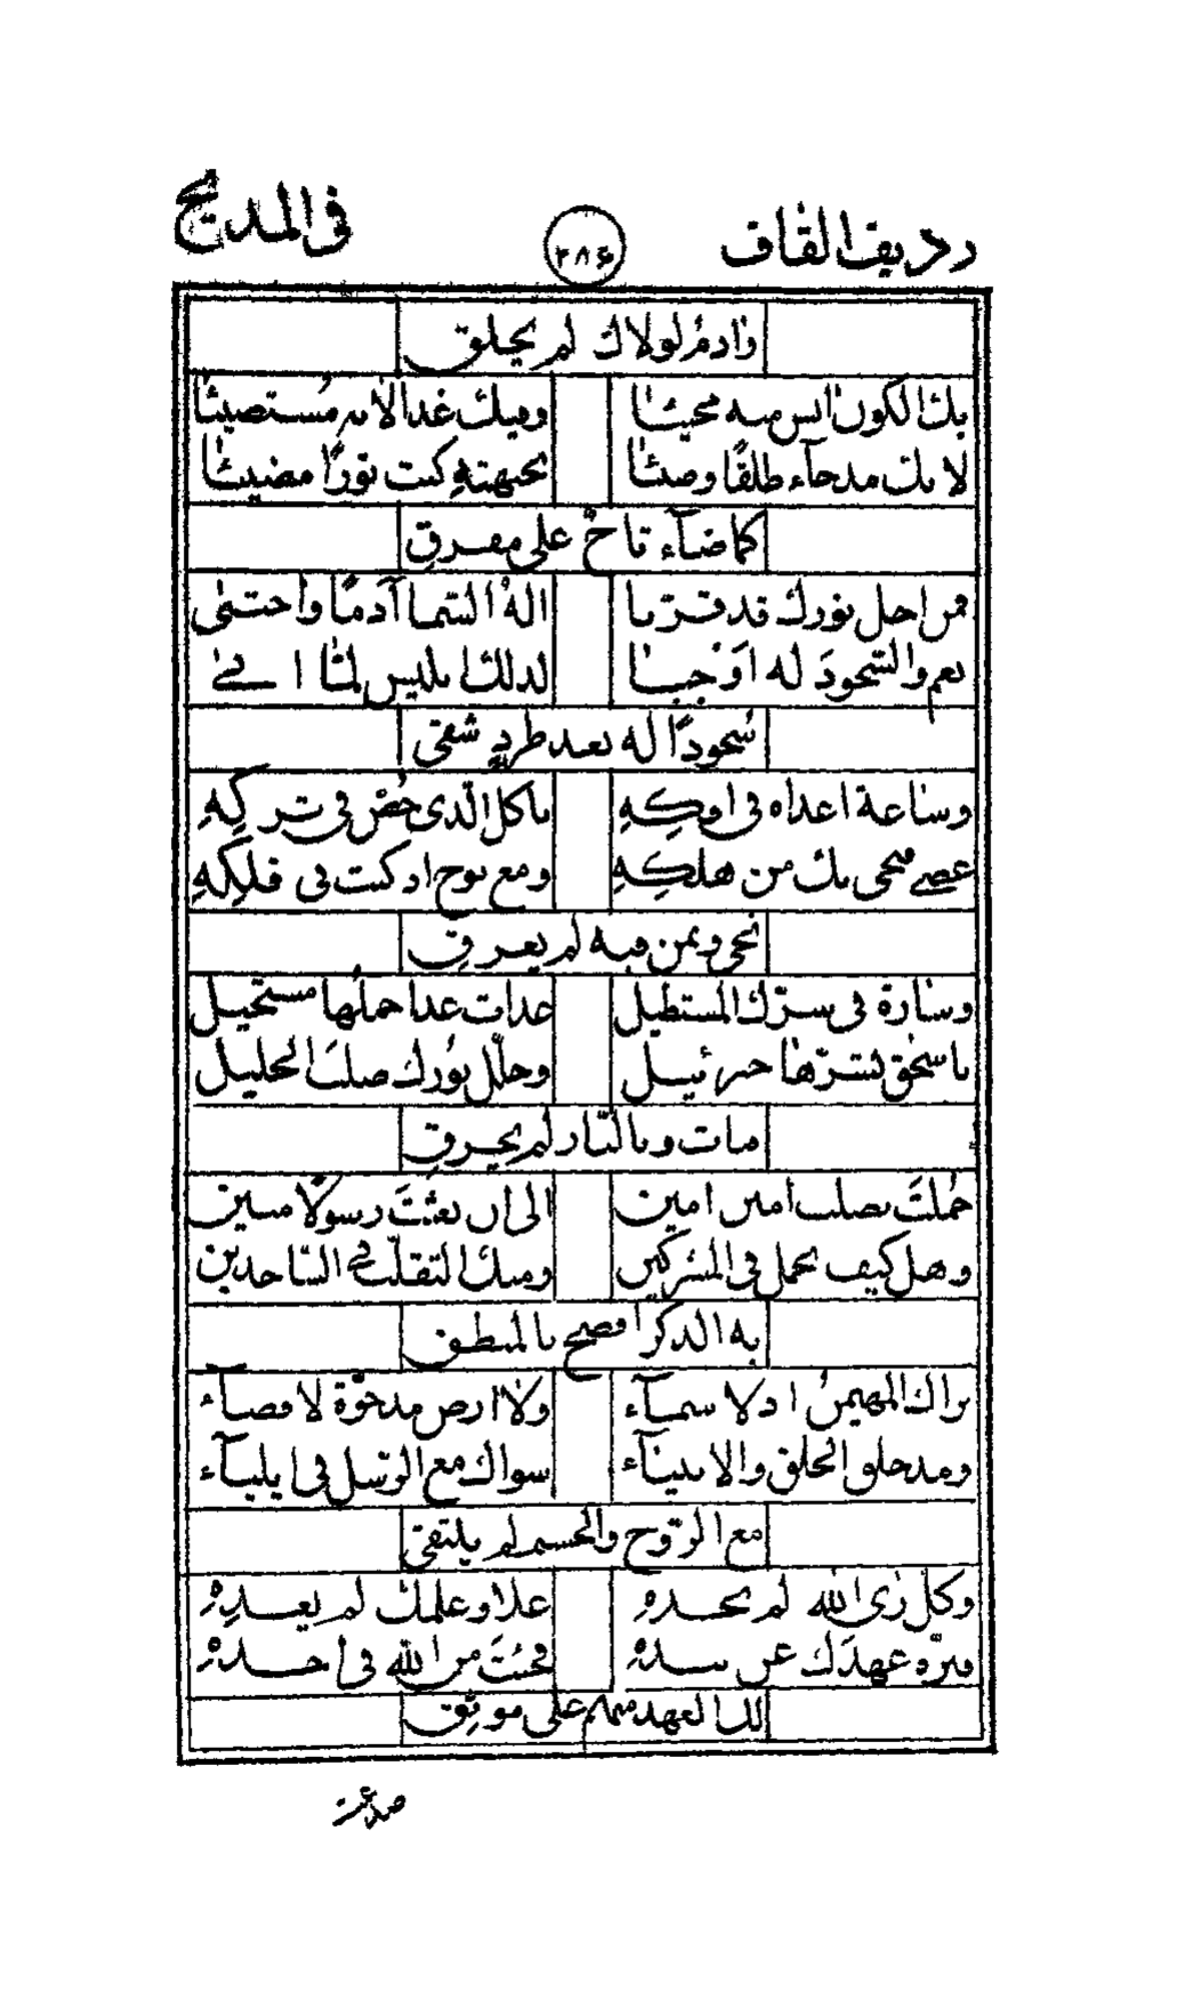 رديف القاف ٢٨٦ في المديح
وآدم لولاك لم يخلق
بك الكون آنس منه مجيئا وفيك غدا لا به مستضيئا
لأنك مذ جاء طلقا وضيئا بجبهته كنت نورا مضيئا
كما ضآء تاج على مفرق
فمن اجل نورك قد قربا اله السما آدما واجتبى
نعم والسجود له اوجبا لذلك ابليس لما ابى
سجودا له بعد طرد شقي
وساعة اغداه في افكه باكل الذي خص في تركه
عصى فنجى بك من هلكه ومع نوح اذ كنت في فلكه
نجى وبمن فيه لم يغرق
وسارة في سرك المستطيل غدات غدا حملها مستحيل
باسحق بشرها جبرئيل وخلل نورك صلب الخليل
فبات وبالنار لم يحرق
حملت بصلب امين امين الى ان بعثت رسولا مبين
وهل كيف تحمل في المشركين ومنك التقلب في الساجدين
به الذكر افصح بالمنطق
براك المهيمن اذ لا سمآء ولا ارض مدحوة لا فضآء
ومذ خلق الخلق والانبيآء سواك مع الرسل في ايليآء
مع الروح والجسم لم يلتقي
وكل رأى الله لم يحده علا وعلمك لم يعده
فنزه عهدك عن نده فجئت من الله في اخذه
لك العهد منهم على موثق